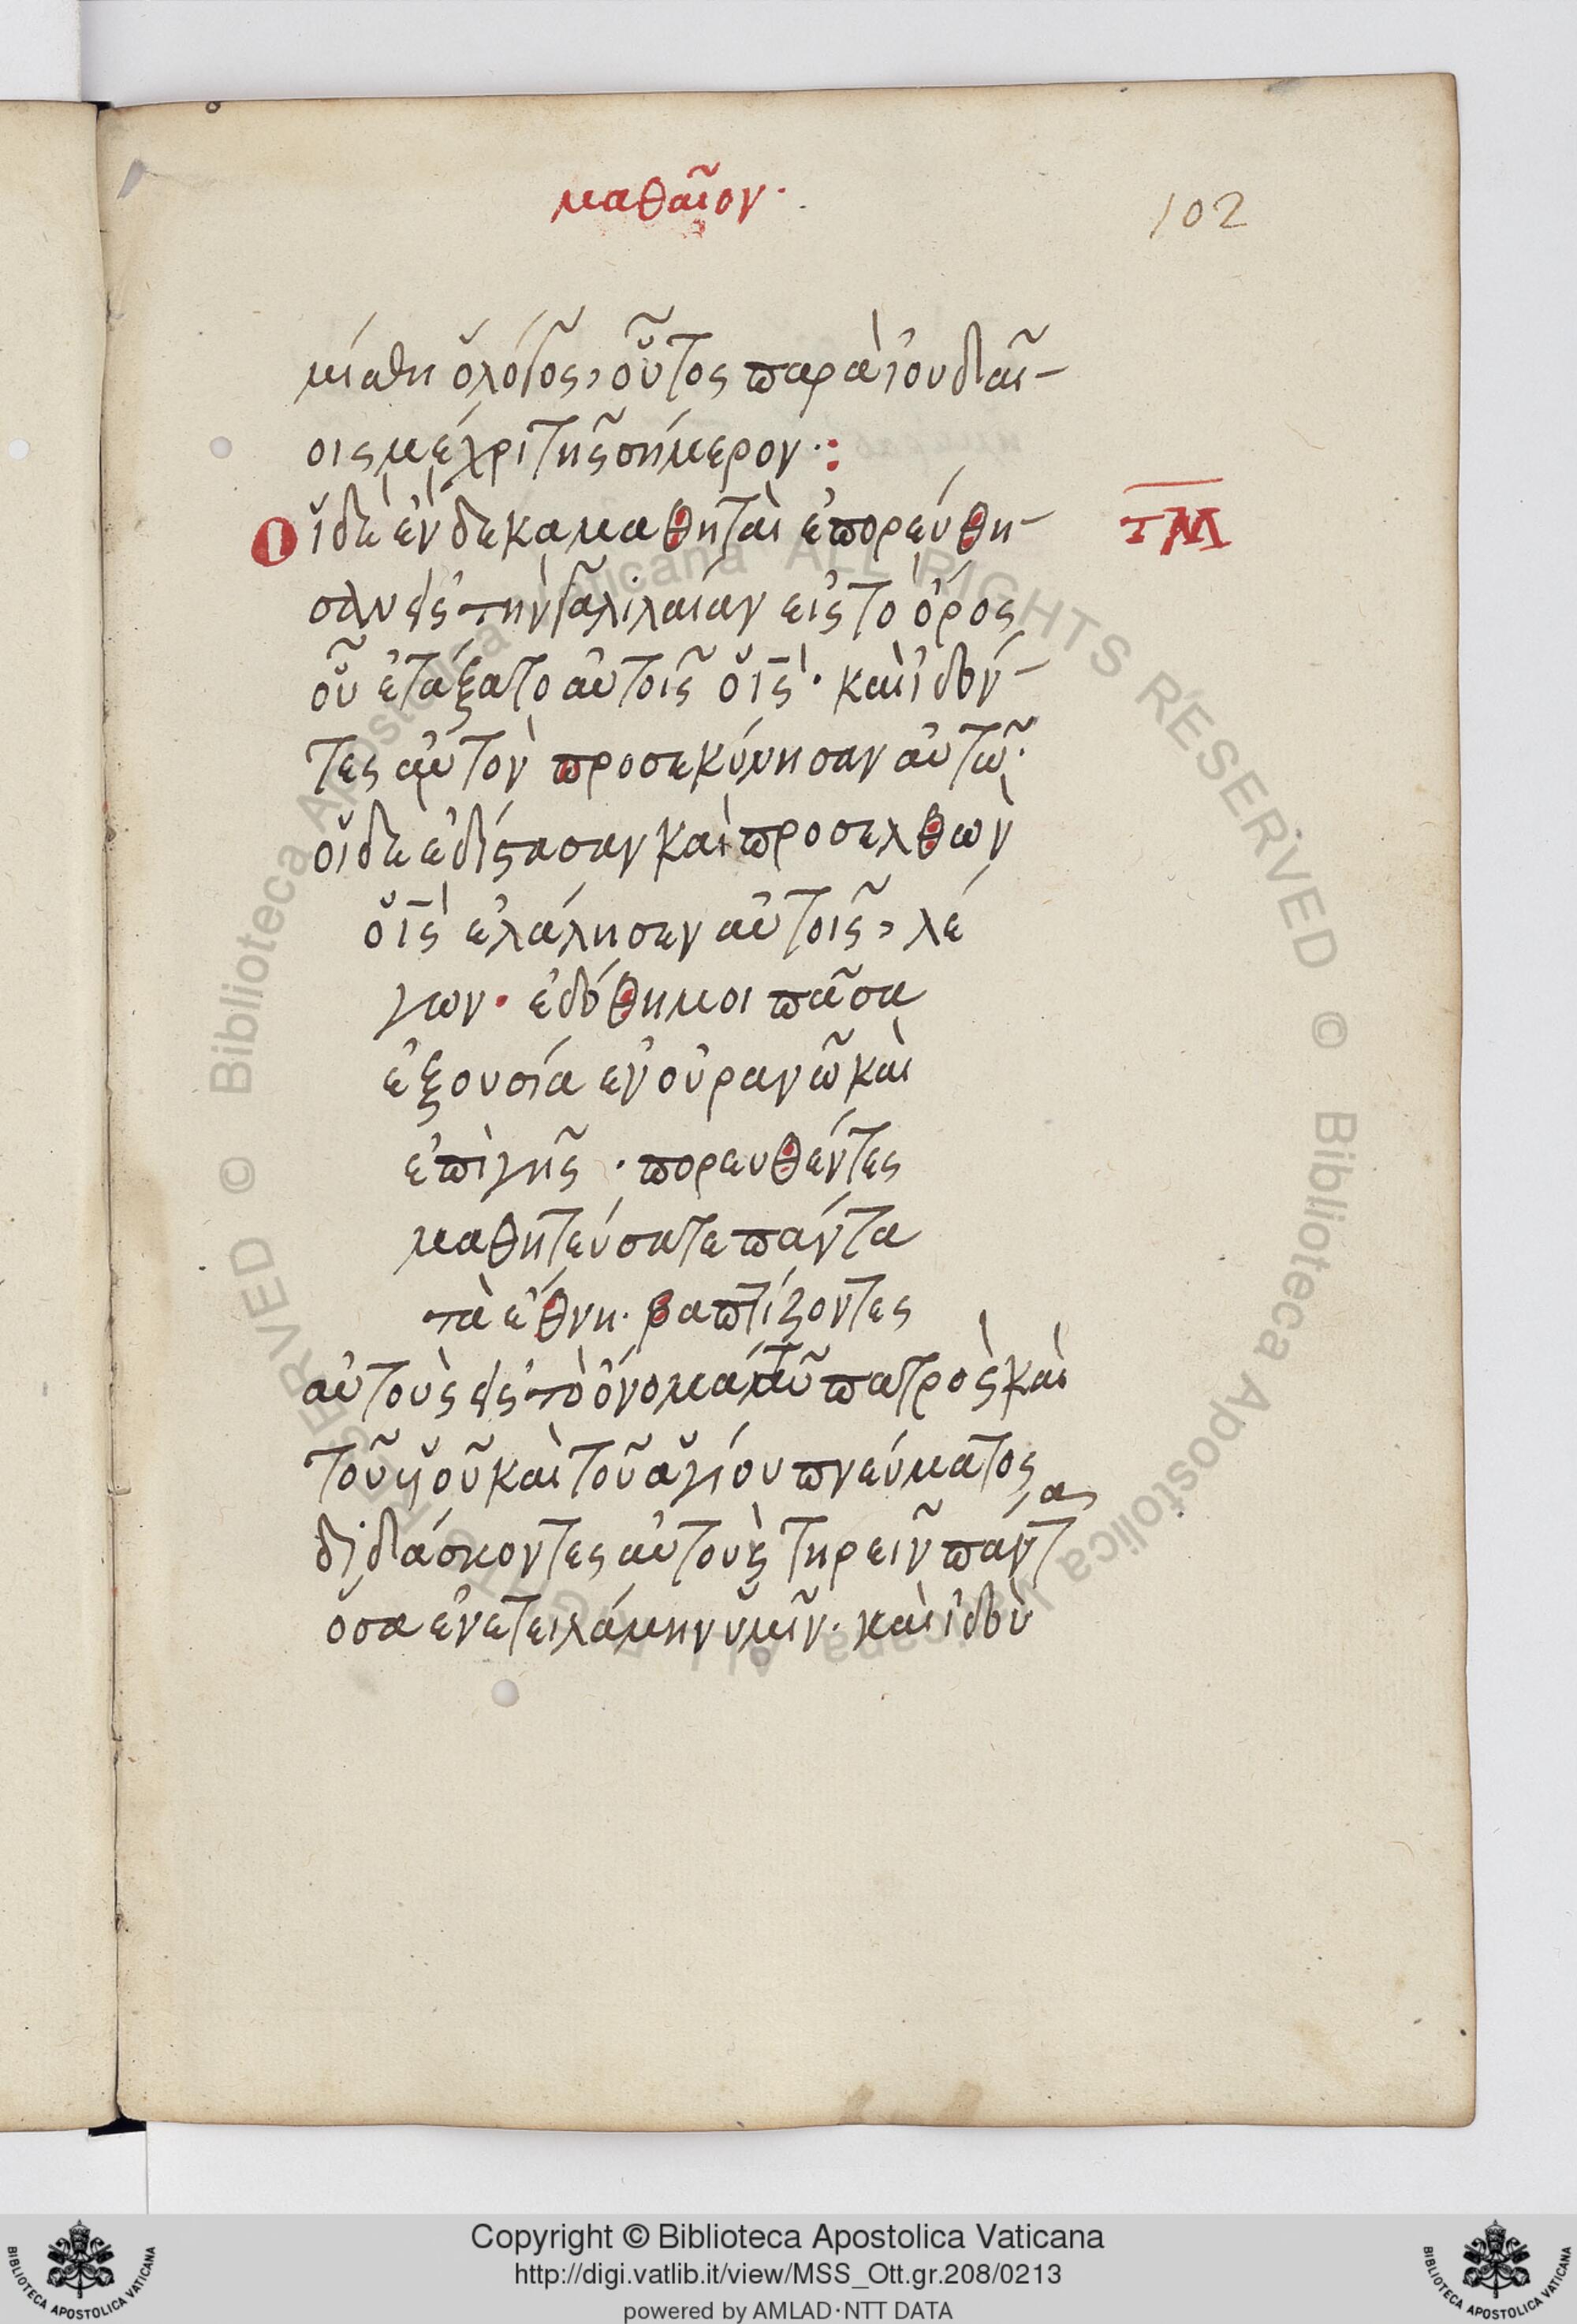 μαθαῖον·
102
μίσθη ὁ λόγος, οὗτος παρὰ ἰουδαῖ-
οις μέχρι τῆς σήμερον·:
Οἱ δὲ ἕνδεκα μαθηταὶ ἐπορεύθη-
τΜ
σαν εἰς τὴν γαλιλαίαν εἰς τὸ ὄρος
οὗ ἐτάξατο αὐτοῖς ὁ ἰς· καὶ ἰδόν-
τες αὐτὸν προσεκύνησαν αὐτῶ·
οἱ δὲ ἐδίστασαν καὶ προσελθὼν
ὁ ἰς ἐλάλησεν αὐτοῖς, λέ
γων· ἐδόθη μοι πᾶσα
ἐξουσία ἐν οὐρανῶ καὶ
ἐπὶ γῆς · πορευθέντες
μαθητεύσατε πάντα
τὰ ἔθνη· βαπτίζοντες
αὐτοὺς εἰς τὸ ὄνομα τοῦ πατρὸς καὶ
τοῦ υἱοῦ καὶ τοῦ ἁγίου πνεύματος
διδάσκοντες αὐτοὺς τηρεῖν πάντα
ὅσα ἐνετειλάμην ὑμῖν· καὶ ἰδοὺ
Copyright © Biblioteca Apostolica Vaticana
http://digi.vatlib.it/view/MSS_Ott.gr.208/0213
powered by AMLAD·NTT DATA
BIBLIOTECA APOSTOLICA VATICANA
BIBLIOTECA APOSTOLICA VATICANA